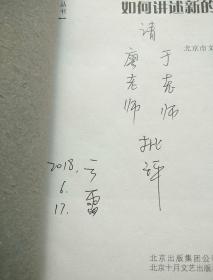 丛书
如何讲述新的
北京市文
请
于老师
唐老师
批评
2018.
6.
17.
北京出版集团公
北京十月文艺出版